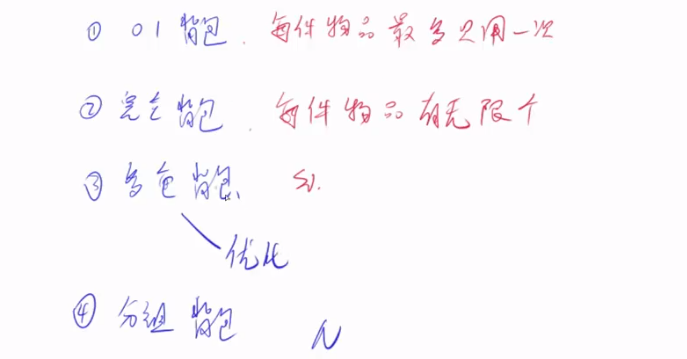 ① 01背包. 每件物品最多只用一次
② 完全背包. 每件物品有无限个
③ 多重背包 Si.
优化
④ 分组背包 N